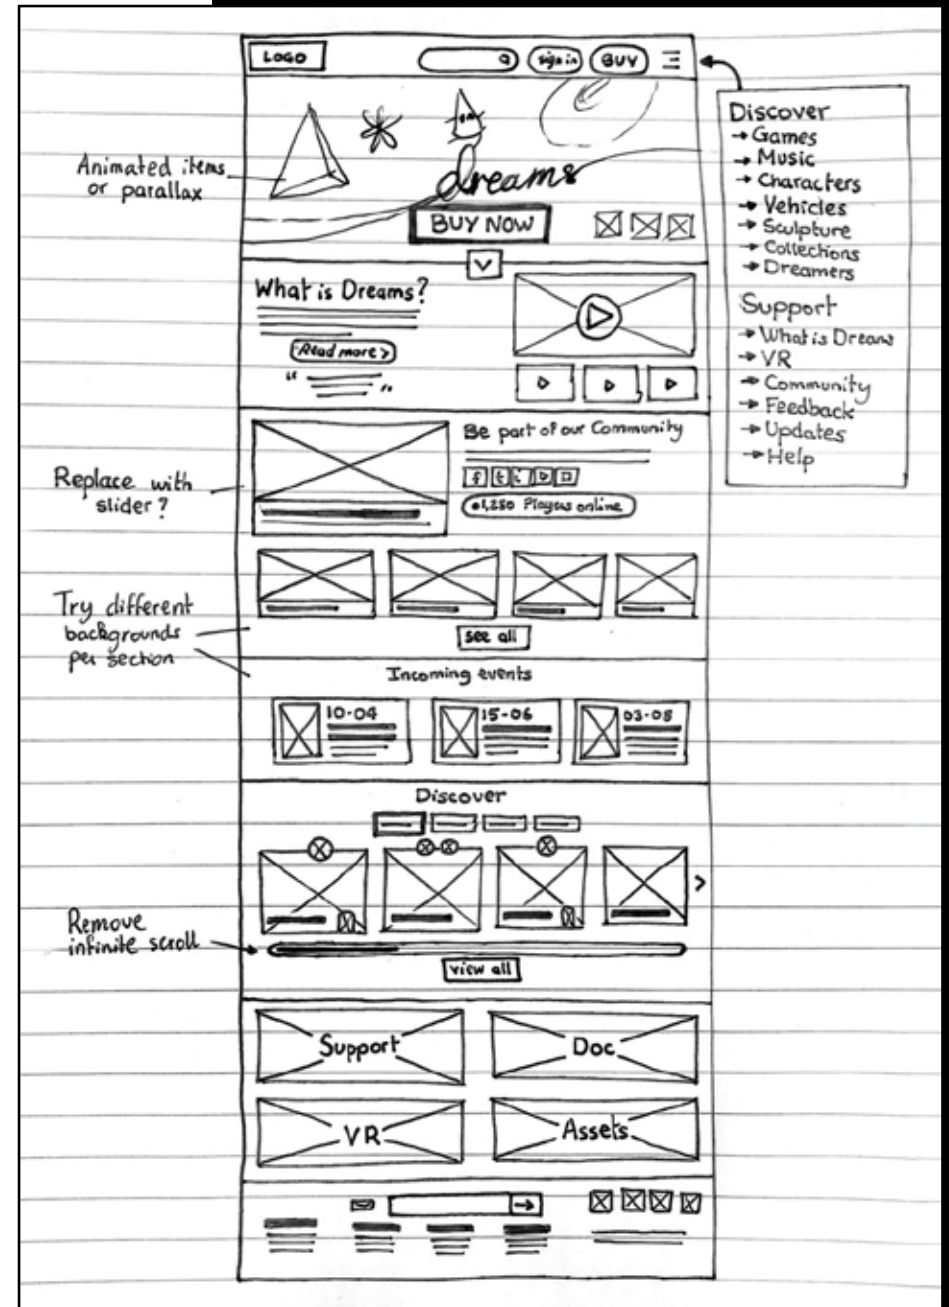 LOGO
sign in
BUY
Discover
→ Games
→ Music
→ Characters
→ Vehicles
→ Sculpture
→ Collections
→ Dreamers
Support
→ What is Dreams
→ VR
→ Community
→ Feedback
→ Updates
→ Help
Animated items
or parallax
dreams
BUY NOW
What is Dreams?
Read more >
Replace with
slider?
Be part of our Community
1,250 Players online
Try different
backgrounds
per section
see all
Incoming events
10-04
15-06
03-08
Discover
Remove
infinite scroll
view all
Support
Doc
VR
Assets